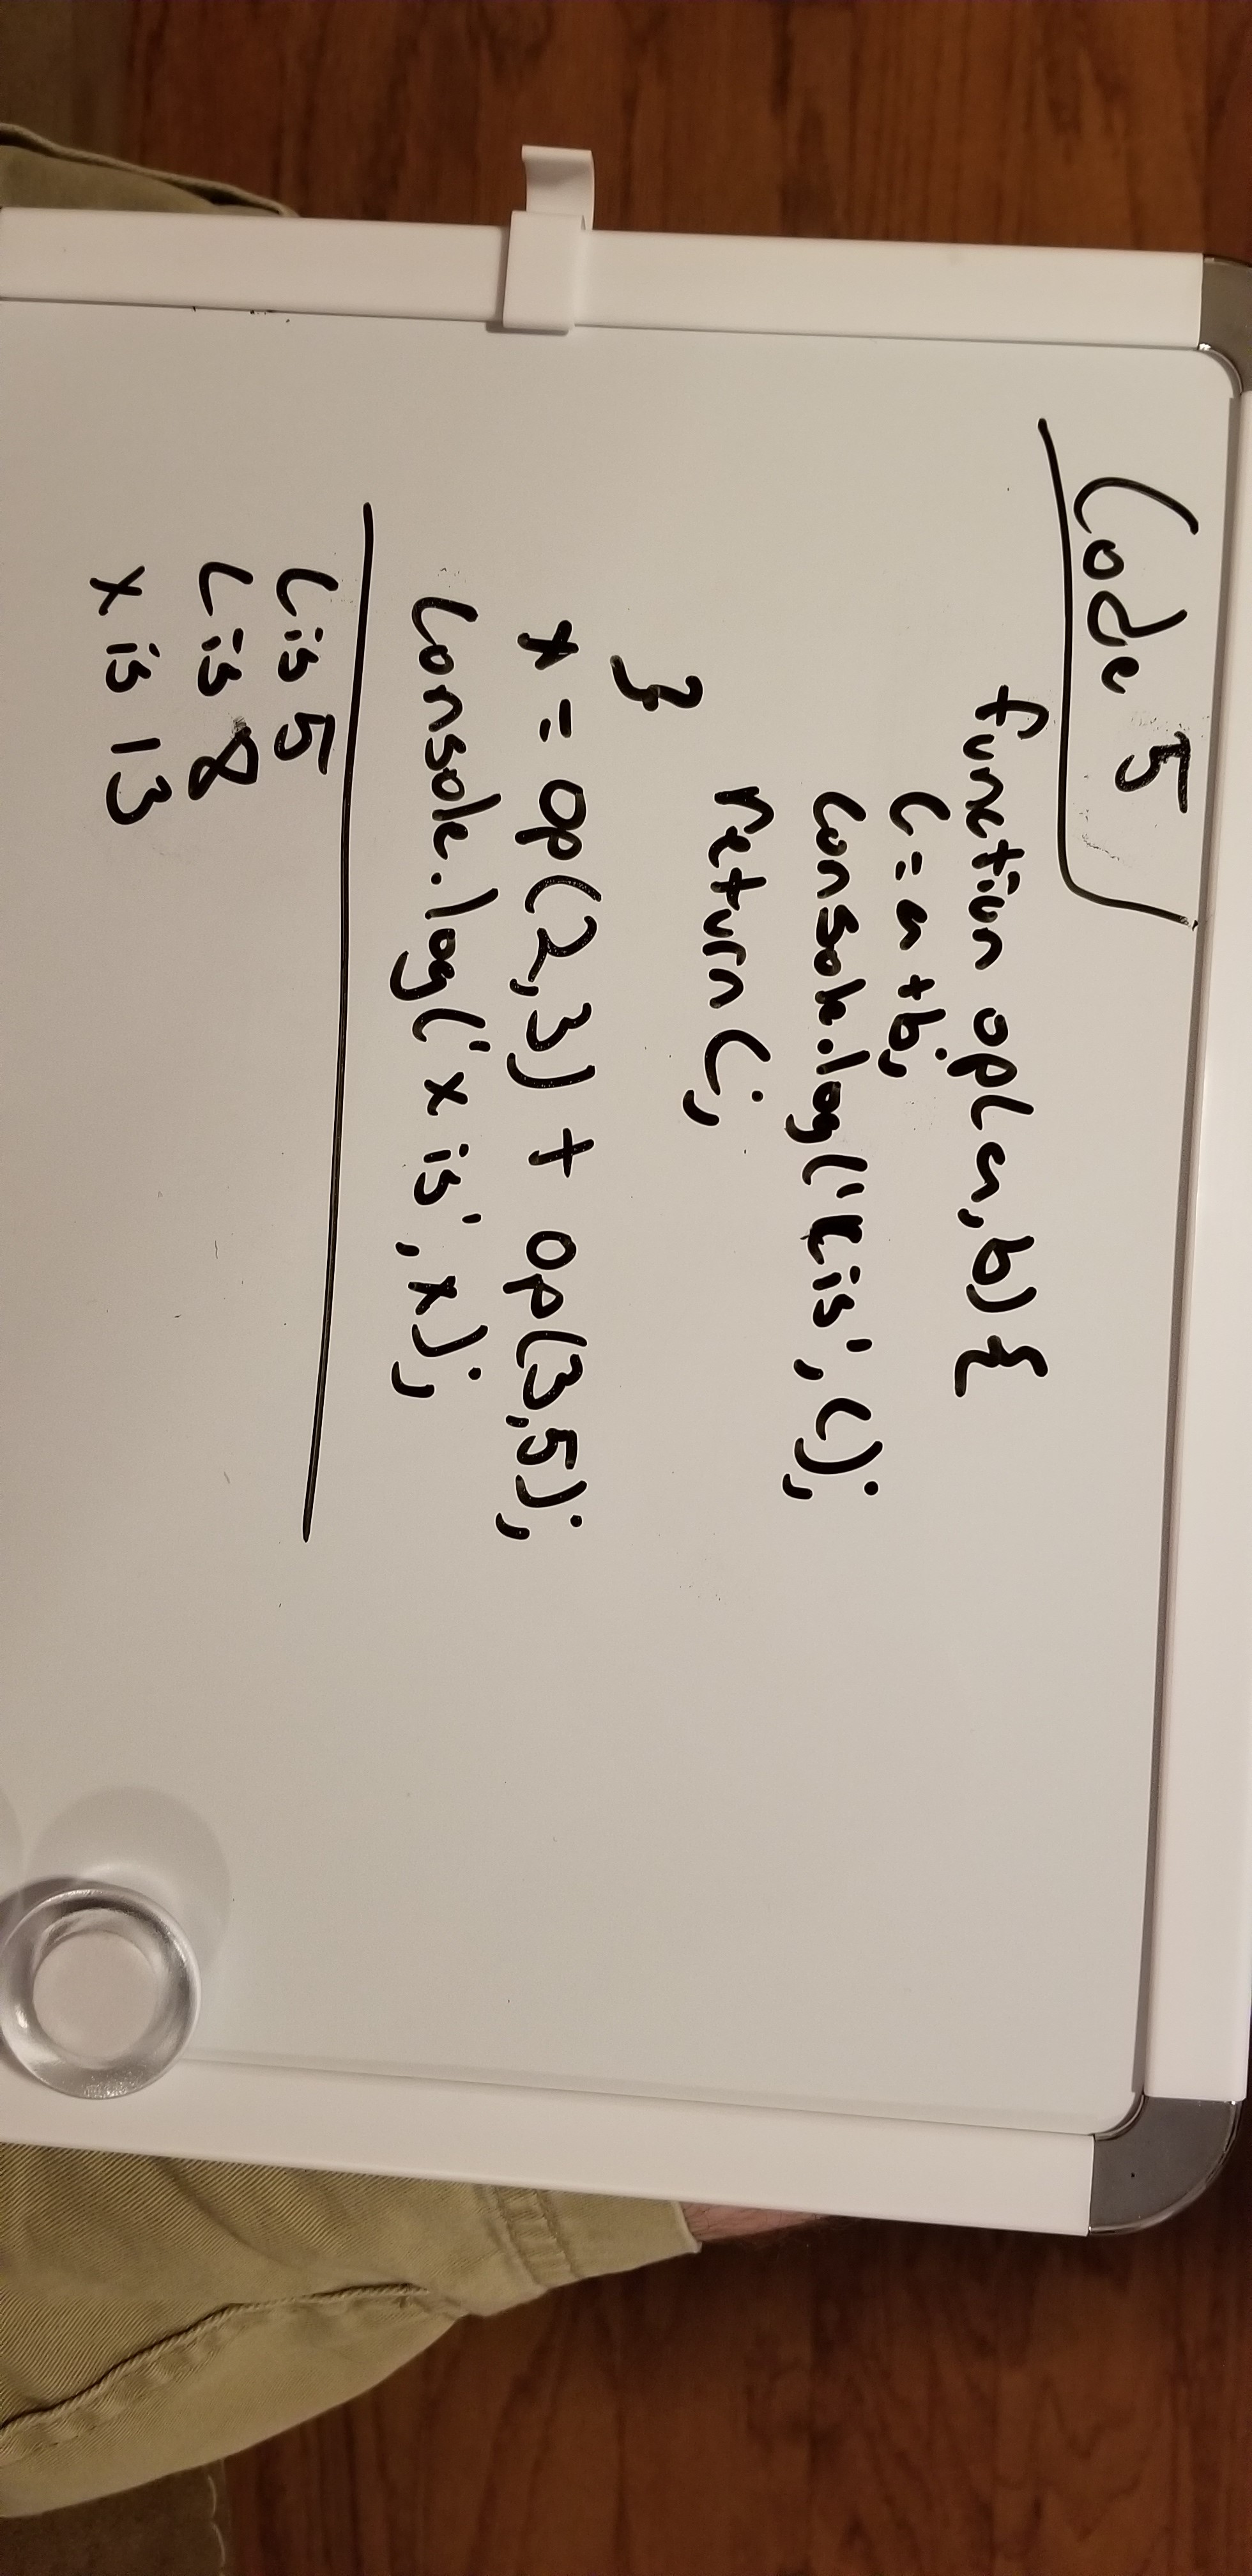 Code 5
function op(a,b) {
c = a + b;
console.log('c is', c);
return c;
}
x = op(2,3) + op(3,5);
console.log('x is', x);
c is 5
c is 8
x is 13